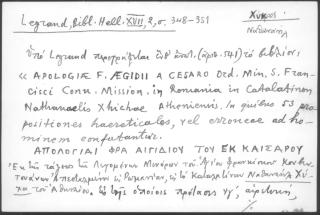 Legrand, Bibl. Hell. XVII, 2, σ. 348-351
Ναθαναὴλ
Ὑπὸ Legrand περιγράφεται (ἀριθ. 541) τὸ βιβλίον:
« APOLOGIAE F. ÆGIDII A CESARO Ord. Min. S. Fran-
cisci Conv. Mission. in Romania in Catalatinon
Nathanaelis Xhichae Atheniensis. In quibus 53 pro-
positiones haereticales, vel erroneae ad ho-
minem confutantur.
ΑΠΟΛΟΓΙΑΙ ΦΡΑ ΑΙΓΙΔΙΟΥ ΤΟΥ ΕΚ ΚΑΙΣΑΡΟΥ
Ἐκ τῆς τάξεως τῶν Λεγομένων Μινόρων τοῦ Ἁγίου Φραγκίσκου Κονβεν-
τουάνων Ἀπεσταλμένου Ῥωμανίαν, Ναθαναὴλ Χύ-
χα τοῦ Ἀθηναίου, ἐν ταῖς ὁποίαις προτάσεις νγ',